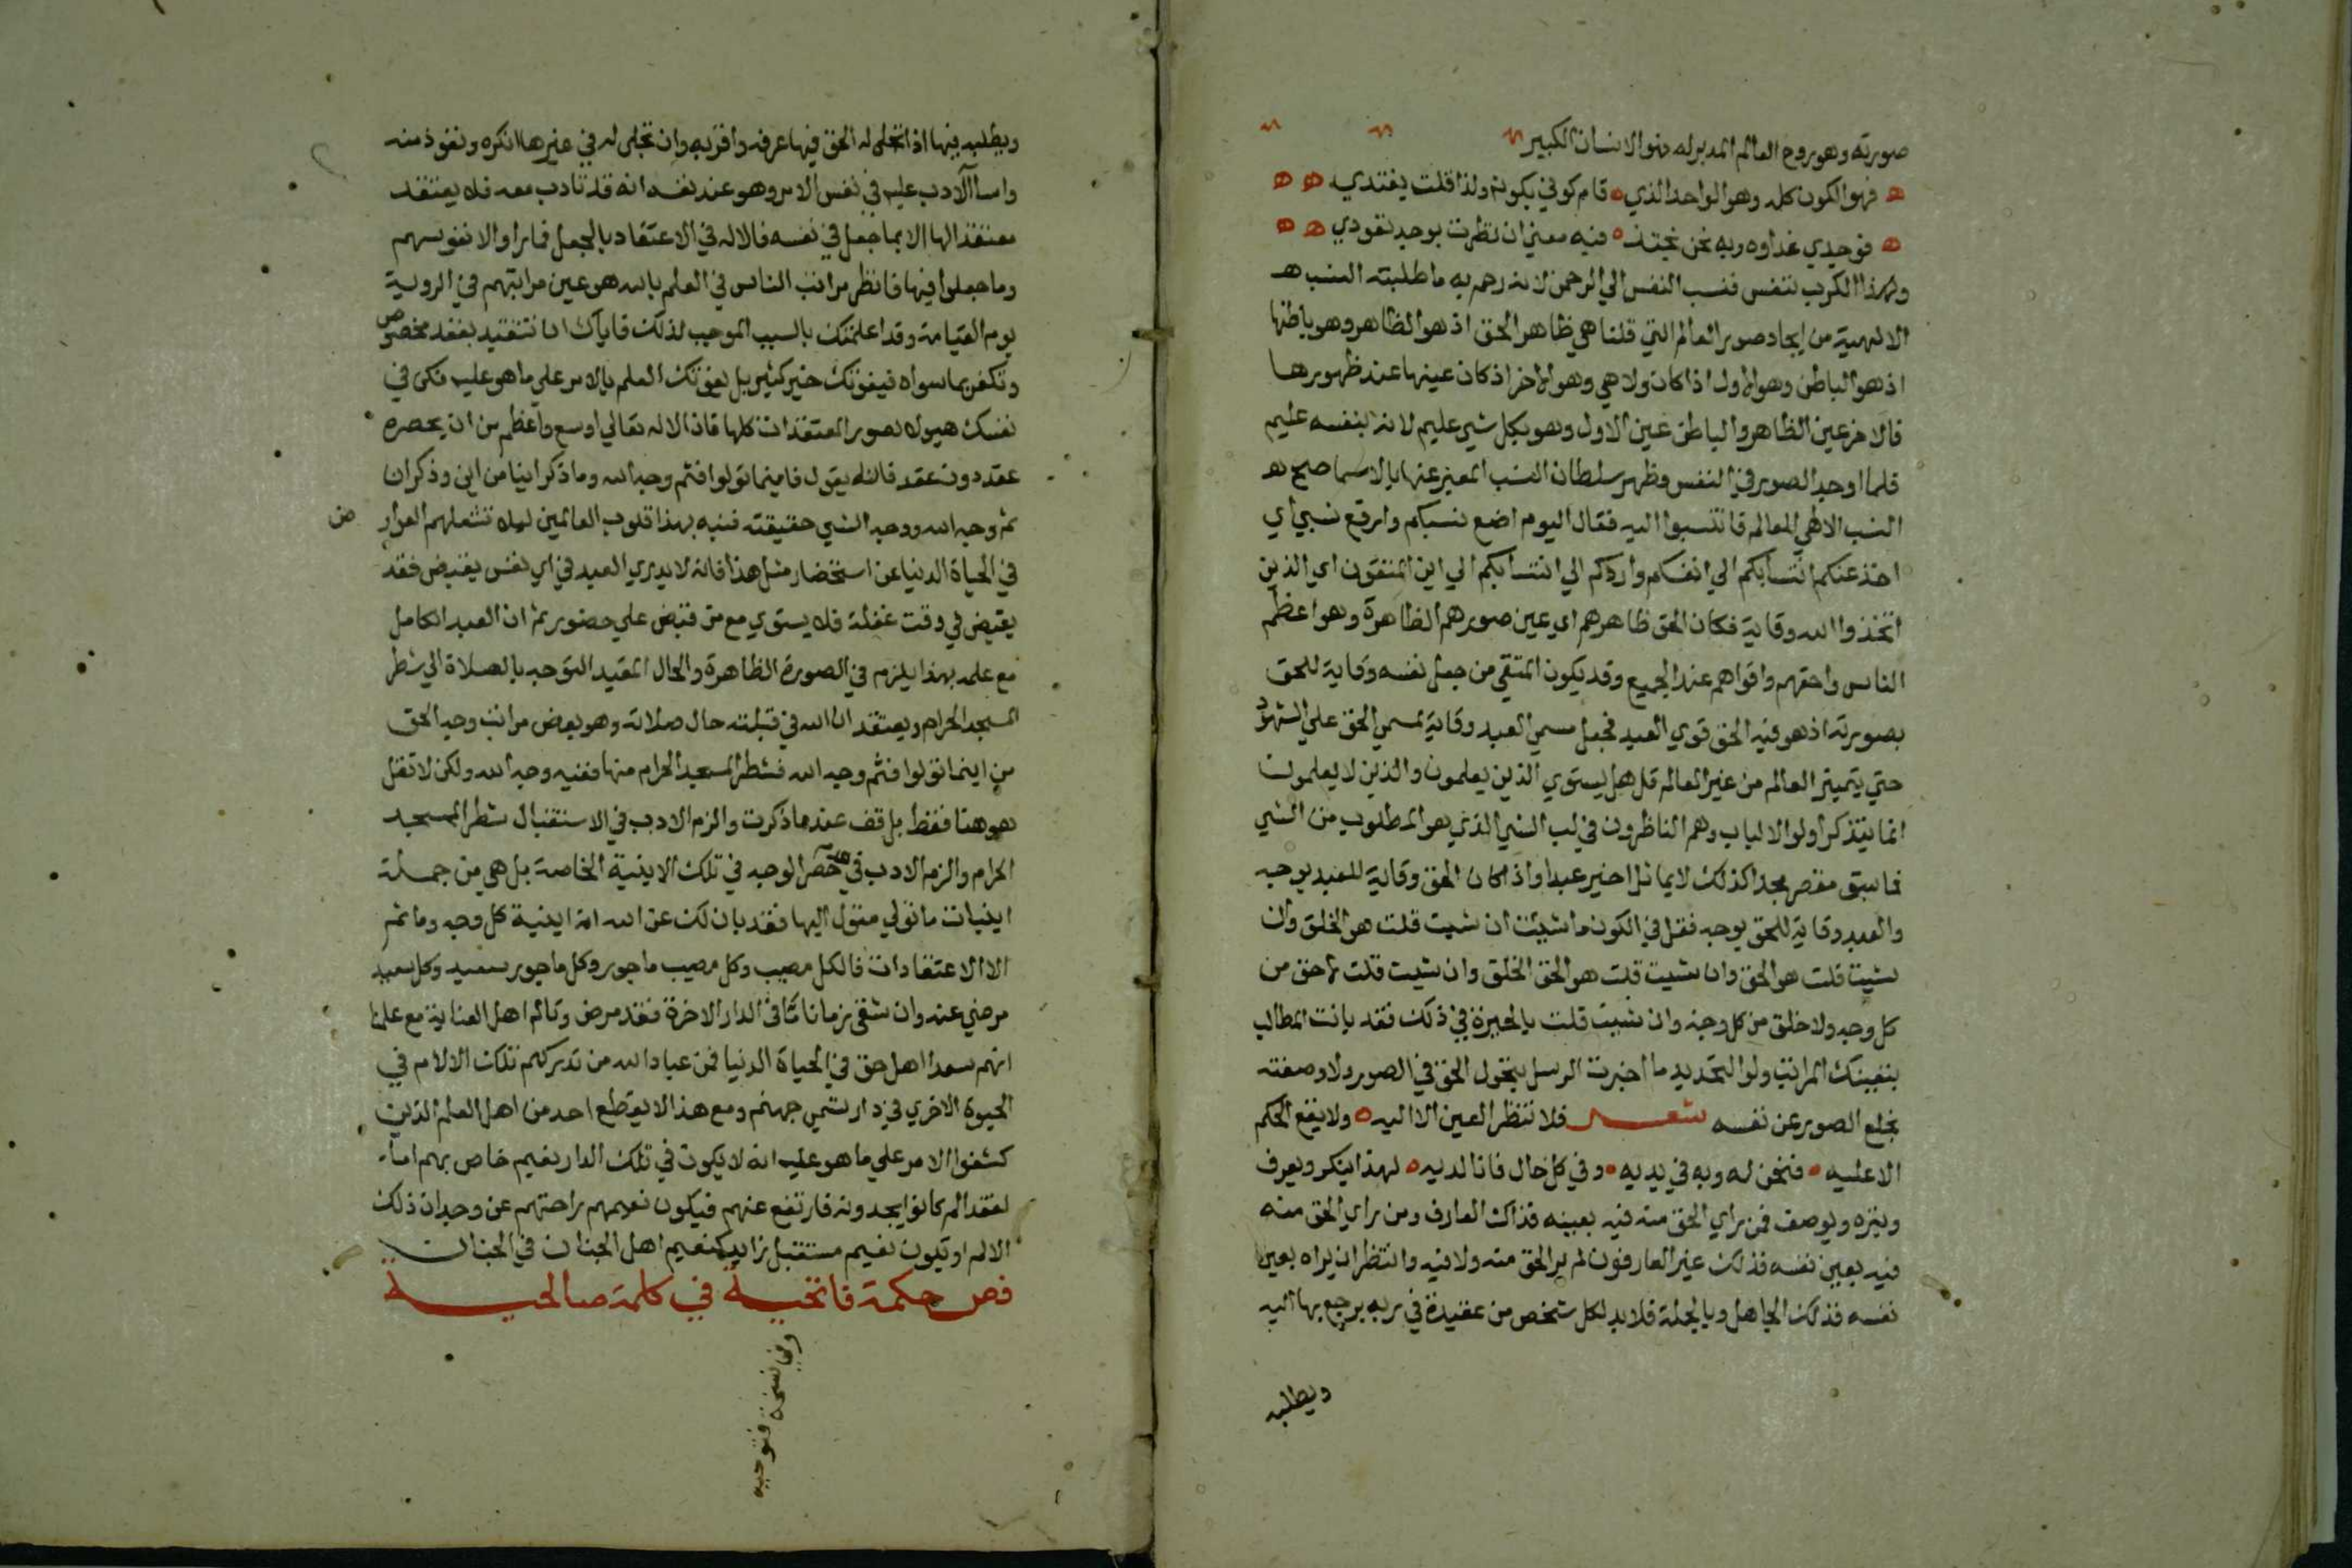 صورته وهو روح العالم المدبر له فهو الانسان الكبير
فهو الكون كله وهو الواحد الذي قام كوني بكونه ولذا قلت يغتدي
فوجودي غذاوه وبه نحن نحتذي فبه منه ان نظرت بوجه تعوذي
ولهذا الكرب تنفس فنسب النفس الي الرحمن لانه رحم به ما طلبته النسب
الالهية من ايجاد صور العالم التي قلنا هي ظاهر الحق اذ هو الظاهر وهو باطنها
اذ هو الباطن وهو الاول اذ كان ولا هي وهو الاخر اذ كان عينها عند ظهورها
فالاخر عين الظاهر والباطن عين الاول وهو بكل شي عليم لانه بنفسه عليم
فلما اوجد الصور في النفس وظهر سلطان النسب المعبر عنها بالاسما صح
النسب الالهي للعالم فانتسبوا اليه فقال اليوم اضع نسبكم وارفع نسبي اي
اخذ عنكم انتسابكم الي انفسكم واردكم الي انتسابكم الي اين المتقون اي الذين
اتخذوا الله وقاية فكان الحق ظاهرهم اي عين صورهم الظاهرة وهو اعظم
الناس واحقهم واقواهم عند الجميع وقد يكون المتقي من جعل نفسه وقاية للحق
بصورته اذ هوية الحق قوي العبد فجعل مسمي العبد وقاية لمسمي الحق علي الشهود
حتي يتميز العالم من غير العالم قل هل يستوي الذين يعلمون والذين لا يعلمون
انما يتذكر اولو الالباب وهم الناظرون في لب الشي الذي هو المطلوب من الشي
فما سبق مقصر مجدا كذلك لا يماثل اجير عبدا واذا كان الحق وقاية للعبد بوجه
والعبد وقاية للحق بوجه فقل في الكون ما شيت ان شيت قلت هو الخلق وان
شيت قلت هو الحق وان شيت قلت هو الحق الخلق وان شيت قلت لا حق من
كل وجه ولا خلق من كل وجه وان شيت قلت بالحيرة في ذلك فقد بانت المطالب
بتعيينك المراتب ولولا التحديد ما اخبرت الرسل بتحول الحق في الصور ولا وصفته
بخلع الصور عن نفسه شعر فلا تنظر العين الا اليه ولا يقع الحكم
الا عليه فنحن له وبه في يديه وفي كل حال فانا لديه لهذا ينكر ويعرف
وينزه ويوصف فمن راي الحق منه فيه بعينه فذاك العارف ومن راي الحق منه
فيه بعين نفسه فذلك غير العارفون لم ير الحق منه ولا فيه وانتظر ان يراه بعين
نفسه فذلك الجاهل وبالجملة فلا بد لكل شخص من عقيدة في ربه يرجع بها اليه
ويطلبه
ويطلبه فيها اذا تجلي له الحق فيها عرفه واقر به وان تجلي له في غيرها انكره وتعوذ منه
واسا الادب عليه في نفس الامر وهو عند نفسه انه قد تادب معه فلا يعتقد
معتقد الها الا بما جعل في نفسه فالاله في الاعتقاد بالجعل فما راوا الا نفوسهم
وما جعلوا فيها فانظر مراتب الناس في العلم بالله هو عين مراتبهم في الروية
يوم القيامة وقد اعلمتك بالسبب الموجب لذلك فاياك ان تتقيد بعقد مخصوص
وتكفر بما سواه فيفوتك خير كثير بل يفوتك العلم بالامر علي ما هو عليه فكن في
نفسك هيولي لصور المعتقدات كلها فان الاله تعالي اوسع واعظم من ان يحصره
عقد دون عقد فالله يقول فاينما تولوا فثم وجه الله وما ذكر اينا من اين وذكر ان
ثم وجه الله ووجه الشي حقيقته فنبه بهذا قلوب العالمين ليلا تشغلهم العوار ض
في الحياة الدنيا عن استحضار مثل هذا فانه لا يدري العبد في اي نفس يقبض فقد
يقبض في وقت غفلة فلا يستوي مع من قبض علي حضور ثم ان العبد الكامل
مع علمه بهذا يلزم في الصورة الظاهرة والحال المقيد التوجه بالصلاة الي شطر
المسجد الحرام ويعتقد ان الله في قبلته حال صلاته وهو بعض مراتب وجه الحق
من اينما تولوا فثم وجه الله فشطر المسجد الحرام منها ففيه وجه الله ولكن لا تقل
هو هنا فقط بل قف عندما ذكرت والزم الادب في الاستقبال شطر المسجد
الحرام والزم الادب في عدم حصر الوجه في تلك الاينية الخاصة بل هي من جملة
اينيات ما تولي متول اليها فقد بان لك عن الله انه اينية كل وجه وما ثم
الا الاعتقادات فالكل مصيب وكل مصيب ماجور وكل ماجور سعيد وكل سعيد
مرضي عنه وان شقي زمانا ما في الدار الاخرة فقد مرض وتالم اهل العناية مع علمنا
انهم سعدا اهل حق في الحياة الدنيا فمن عباد الله من تدركهم تلك الالام في
الحيوة الاخري في دار تسمي جهنم ومع هذا لا يقطع احد من اهل العلم الذين
كشفوا الامر علي ما هو عليه انه لا يكون في تلك الدار نعيم خاص بهم اما
لفقد الم كانوا يجدونه فارتفع عنهم فيكون نعيمهم راحتهم عن وجدان ذلك
الالم او يكون نعيم مستقبل زايد كنعيم اهل الجنان في الجنان
فص حكمة فاتحية في كلمة صالحية
وفي نسخة فتوحية